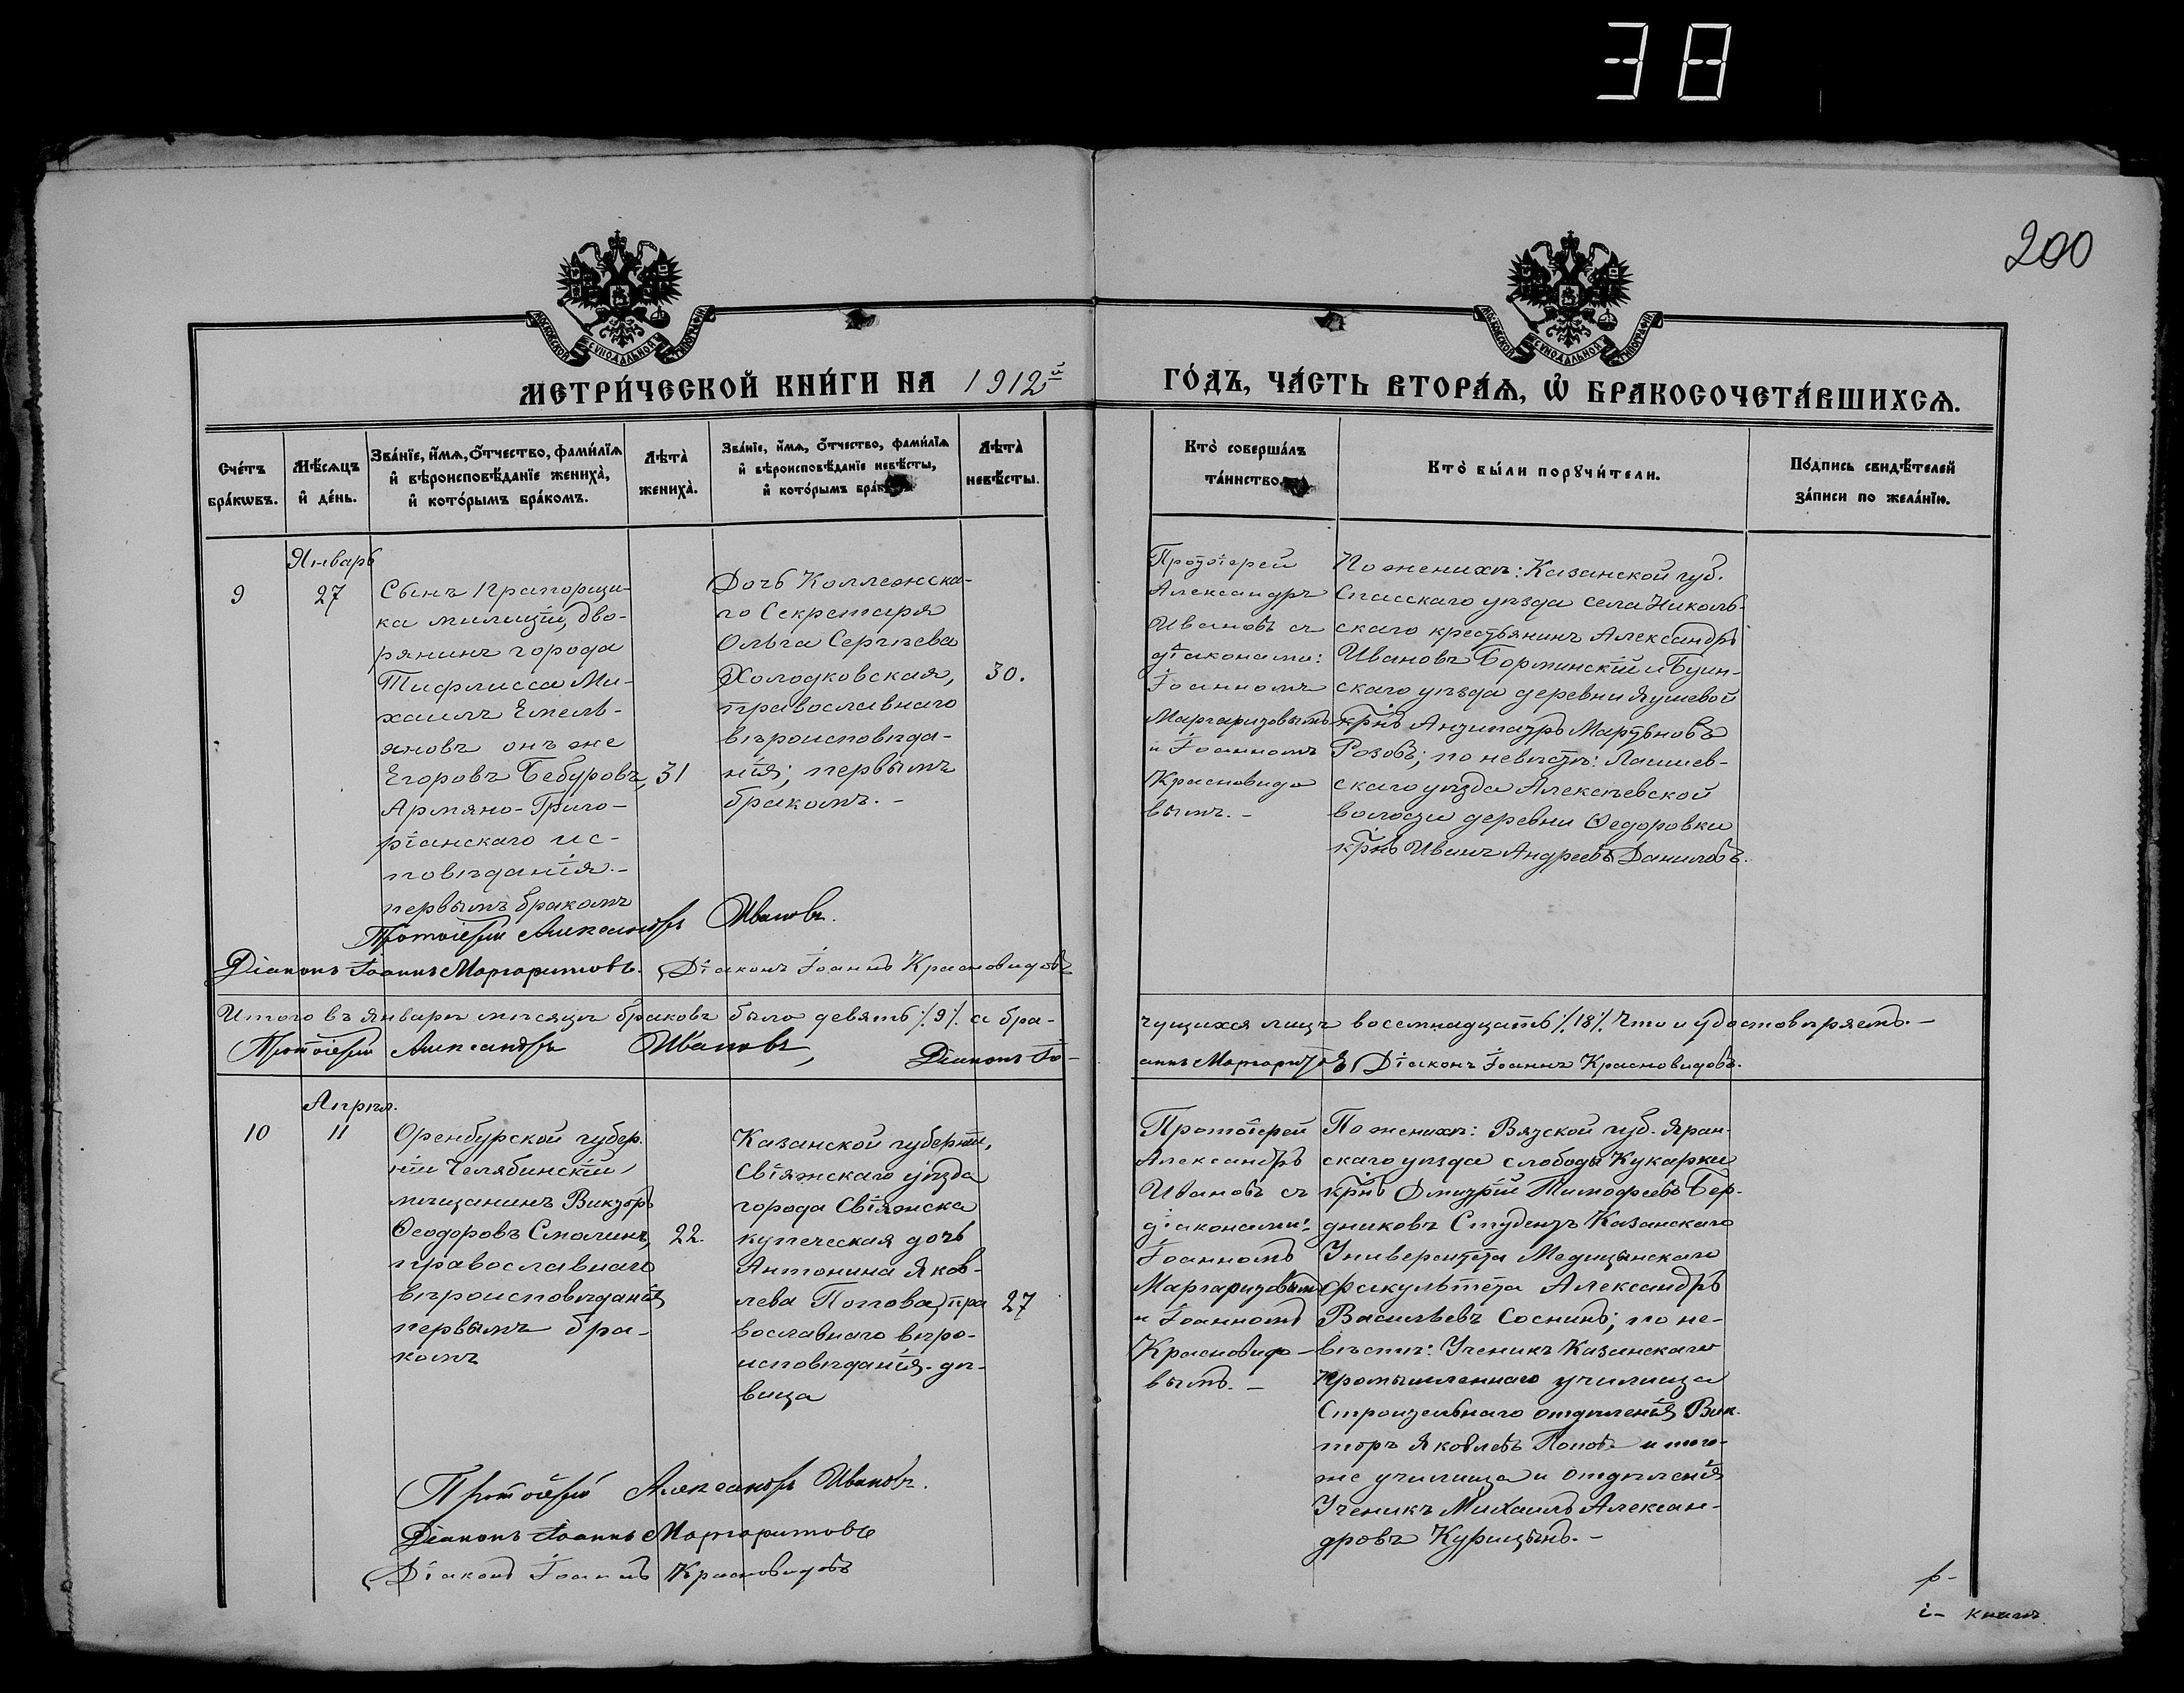 38
200
МОСКОВСКОЙ СѴНОДАЛЬНОЙ ТИПОГРАФІИ
МОСКОВСКОЙ СѴНОДАЛЬНОЙ ТИПОГРАФІИ
МЕТРИ́ЧЕСКОЙ КНИ́ГИ НА 1912й ГО́ДЪ, ЧА́СТЬ ВТОРА́Ѧ, Ѡ҆ БРАКОСОЧЕТА́ВШИХСѦ.
Сче́тъ
бра́кѡвъ.
Мѣ́сѧцъ
и҆ де́нь.
Зва́нїе, и҆́мѧ, ѻ҆́тчество, фами́лїѧ
и҆ вѣроисповѣ́данїе жениха̀,
и҆ кото́рымъ бра́комъ.
Лѣта̀
жениха̀.
Зва́нїе, и҆́мѧ, ѻ҆́тчество, фами́лїѧ
и҆ вѣроисповѣ́данїе невѣ́сты,
и҆ кото́рымъ бра́комъ.
Лѣта̀
невѣ́сты.
Кто̀ соверша́лъ
та́инство.
Кто̀ бы́ли порꙋчи́тели.
По́дпись свидѣ́телей
за́писи по жела́нїю.
Январь
9
27
Сынъ Прапорщи-
ка милиціи, дво-
рянинъ города
Тифлисса Ми-
хаилъ Емель-
яновъ онъ же
Егоровъ Бебуровъ,
Армяно-Григо-
ріанскаго ис-
повѣданія.-
первымъ бракомъ
31
Дочь Коллежска-
го Секретаря
Ольга Сергѣева
Холодковская,
православнаго
вѣроисповѣда-
нія; первымъ
бракомъ.-
30.
Протоіерей
Александръ
Ивановъ съ
діаконами:
Іоанномъ
Маргаритовымъ
и Іоанномъ
Красновидо
вымъ.-
По женихѣ: Казанской губ.
Спасскаго уѣзда села Николь-
скаго крестьянинъ Александръ
Ивановъ Борминскій и Буин-
скаго уѣзда деревни Яушевой
крнъ Антипатръ Мартыновъ
Розовъ; по невѣстѣ: Лаишев-
скаго уѣзда Алексѣевской
волости деревни Ѳедоровки
крнъ Иванъ Андреевъ Даниловъ.
Протоіерей Александръ Ивановъ.
Діаконъ Іоаннъ Маргаритовъ. Діаконъ Іоаннъ Красновидовъ
Итого въ январѣ мѣсяцѣ браковъ было девять /9/. а бра-
чущихся лицъ восемнадцать /18/. Что и удостовѣряемъ.-
Протоіерей Александръ Ивановъ, Діаконъ Іо-
аннъ Маргаритовъ, Діаконъ Іоаннъ Красновидовъ.
Апрѣл.
10
11
Оренбурской губер.
ніи Челябинскій
мѣщанинъ Викторъ
Ѳеодоровъ Смолинъ,
православнаго
вѣроисповѣданія,
первымъ бра-
комъ
22.
Казанской губерніи,
Свіяжскаго уѣзда
города Свіяжска
купеческая дочь
Антонина Яков-
лева Попова, пра
вославнаго вѣро-
исповѣданія. дѣ-
вица
27
Протоіерей
Александръ
Ивановъ съ
діаконами:
Іоанномъ
Маргаритовымъ
и Іоанномъ
Красновидо-
вымъ.-
По женихѣ: Вятской губ. Яран-
скаго уѣзда слободы Кукарки
крнъ Дмитрій Тимофеевъ Бер-
дниковъ Студентъ Казанскаго
Университета Медицынскаго
факультета Александръ
Васильевъ Соснинъ; по не-
вѣстѣ: Ученикъ Казанскаго
Промышленнаго училища
Строительнаго отдѣленія Вик-
торъ Яковлевъ Поповъ и того-
же училища и отдѣленія
Ученикъ Михаилъ Алексан-
дровъ Курицынъ.-
Протоіерей Александръ Ивановъ.
Діаконъ Іоаннъ Маргаритовъ
Діаконъ Іоаннъ Красновидовъ